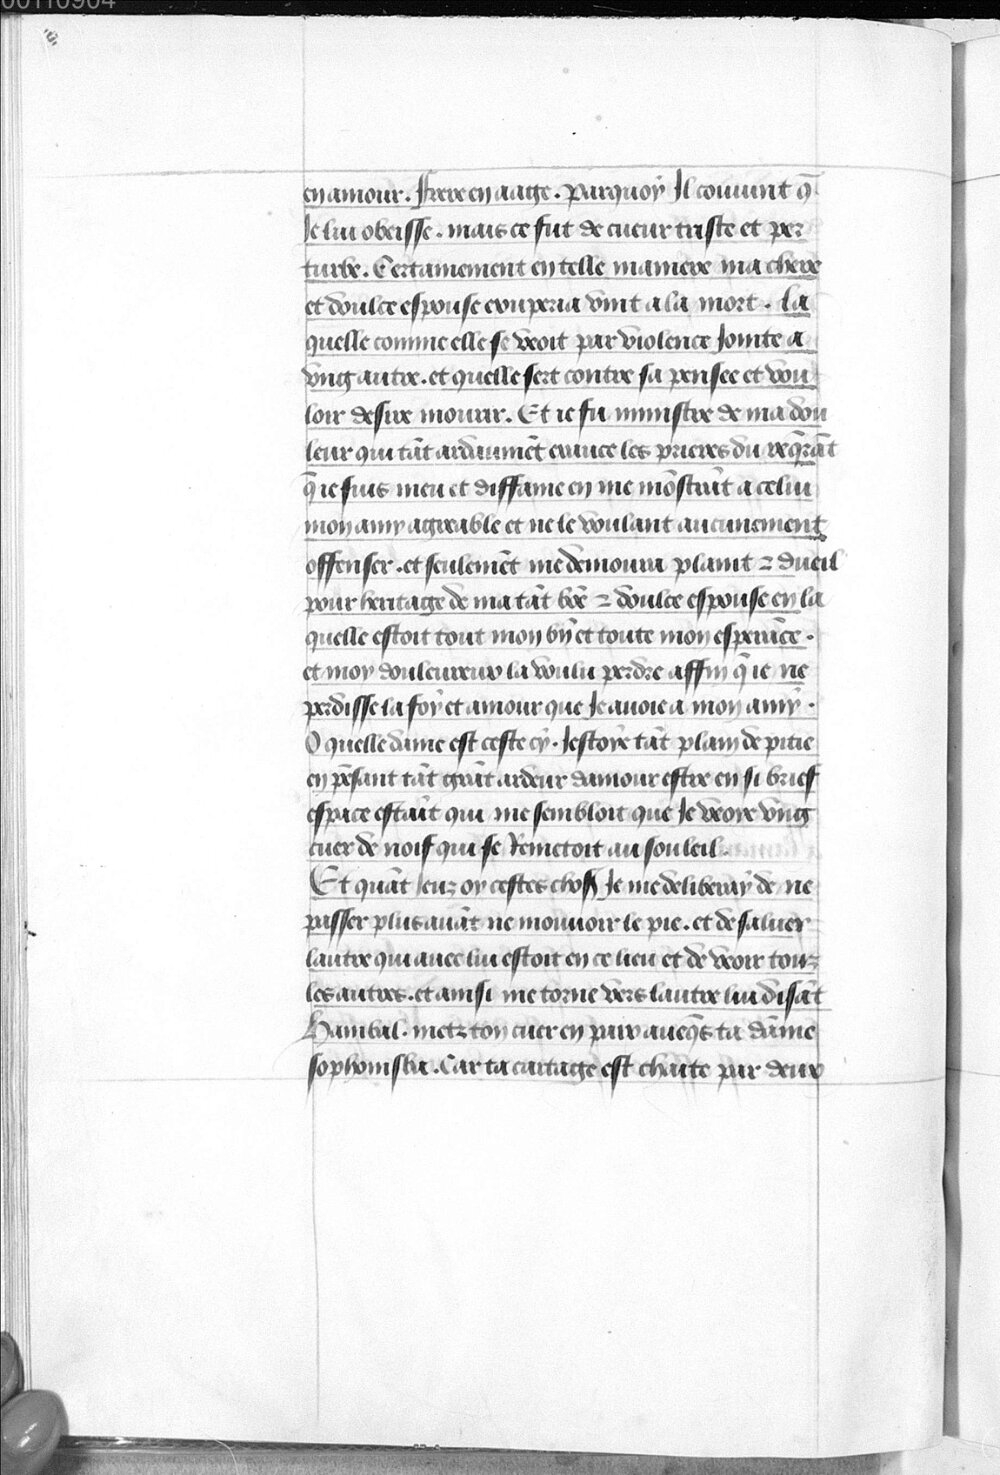 00110904
en amour. Frere en aage. Parquoy Il couuint q̄
Je lui obeisse. mais ce fut de cueur triste et per
turbe. Certainement en telle maniere ma chere
et doulce espouse vint a la mort. La
quelle comme elle se veoit par violence Jointe a
vng autre. et quelle sert contre sa pensee et vou
loir desire mourir. Et ie fu ministre de ma dou
leur qui tāt ardāmēt les prieres du reqrāt
q̄ ie suis meu et diffame en me mōstrāt a celui
mon amy agreable et ne le voulant aucunement
offenser. et seulemēt me demoura plaint ⁊ dueil
pour heritage de ma tāt bōe ⁊ doulce espouse en la
quelle estoit tout mon bn̄ et toute mon esperāce.
et moy douleureux la voulu perdre affin q̄ ie ne
perdisse la foy et amour que Je auoie a mon amy.
O quelle dame est ceste cy. Jestoye tāt plain de pitie
en pēsant tāt grāt ardeur damour estre en si brief
espace estaīt qui me sembloit que Je veoye vng
cuer de noif qui se Remetoit au souleil.
Et quāt Jeuz oy cestes choses Je me deliberay de ne
passer plus auāt ne mouuoir le pie. et de saluer
lautre qui auec lui estoit en ce lieu et de veoir touz
les autres. et ainsi me torne vers lautre lui disāt
Hanibal. metz ton cuer en paix aueqs̄ ta dāme
sophonisba. Car ta cartage est chaite par deux